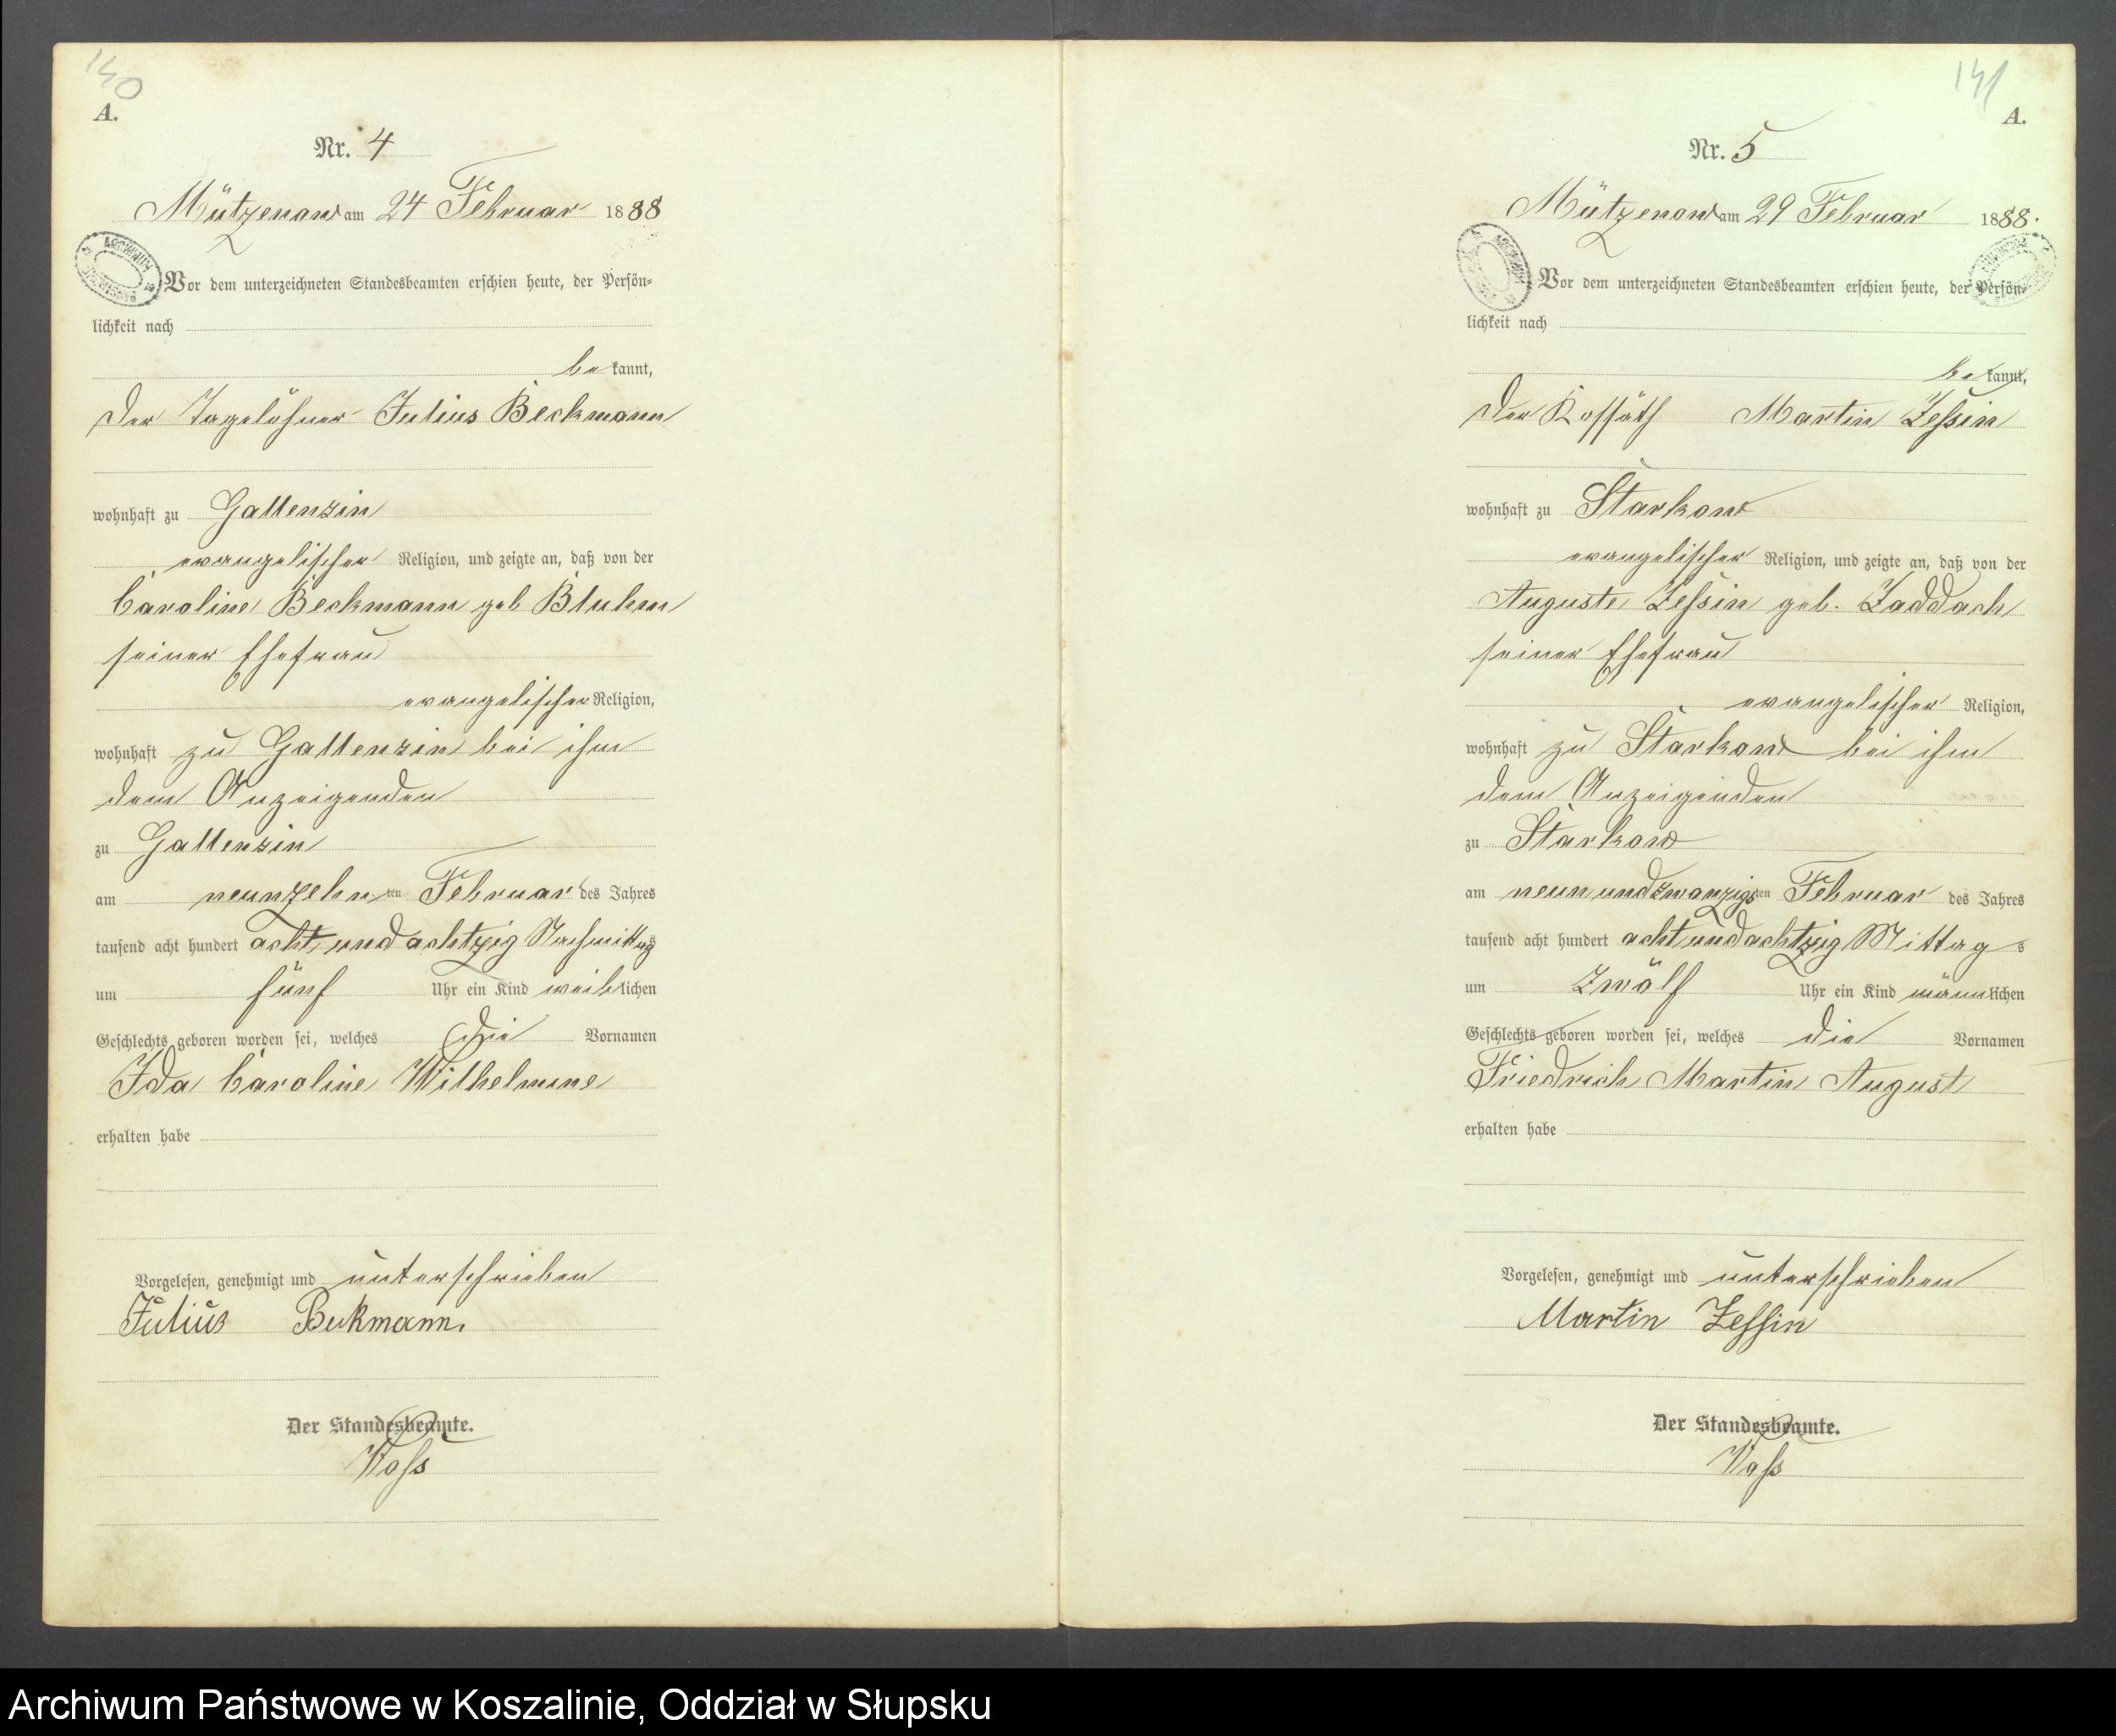 140
A.
Nr. 4
Mützenow am 24 Februar 1888
Vor dem unterzeichneten Standesbeamten erschien heute, der Persön-
lichkeit nach
bekannt,
der Tagelöhner Julius Beckmann
wohnhaft zu Gallenzin
evangelischer Religion, und zeigte an, daß von der
Caroline Beckmann geb Bluhm
seiner Ehefrau
evangelischer Religion,
wohnhaft zu Gallenzin bei ihm
dem Anzeigenden
zu Gallenzin
am neunzehnten Februar des Jahres
tausend acht hundert acht und achtzig Nachmittags
um fünf Uhr ein Kind weiblichen
Geschlechts geboren worden sei, welches die Vornamen
Ida Caroline Wilhelmine
erhalten habe
Vorgelesen, genehmigt und unterschrieben
Julius Beckmann.
Der Standesbeamte.
Voss
141
A.
Nr. 5
Mützenow am 29 Februar 1888.
Vor dem unterzeichneten Standesbeamten erschien heute, der Persön-
lichkeit nach
bekannt,
der Kossäth Martin Zessin
wohnhaft zu Starkow
evangelischer Religion, und zeigte an, daß von der
Auguste Zessin geb. Zaddach
seiner Ehefrau
evangelischer Religion,
wohnhaft zu Starkow bei ihm
dem Anzeigenden
zu Starkow
am neun und zwanzigsten Februar des Jahres
tausend acht hundert acht und achtzig Mittags
um zwölf Uhr ein Kind männlichen
Geschlechts geboren worden sei, welches die Vornamen
Friedrich Martin August
erhalten habe
Vorgelesen, genehmigt und unterschrieben
Martin Zessin
Der Standesbeamte.
Voss
Archiwum Państwowe w Koszalinie, Oddział w Słupsku